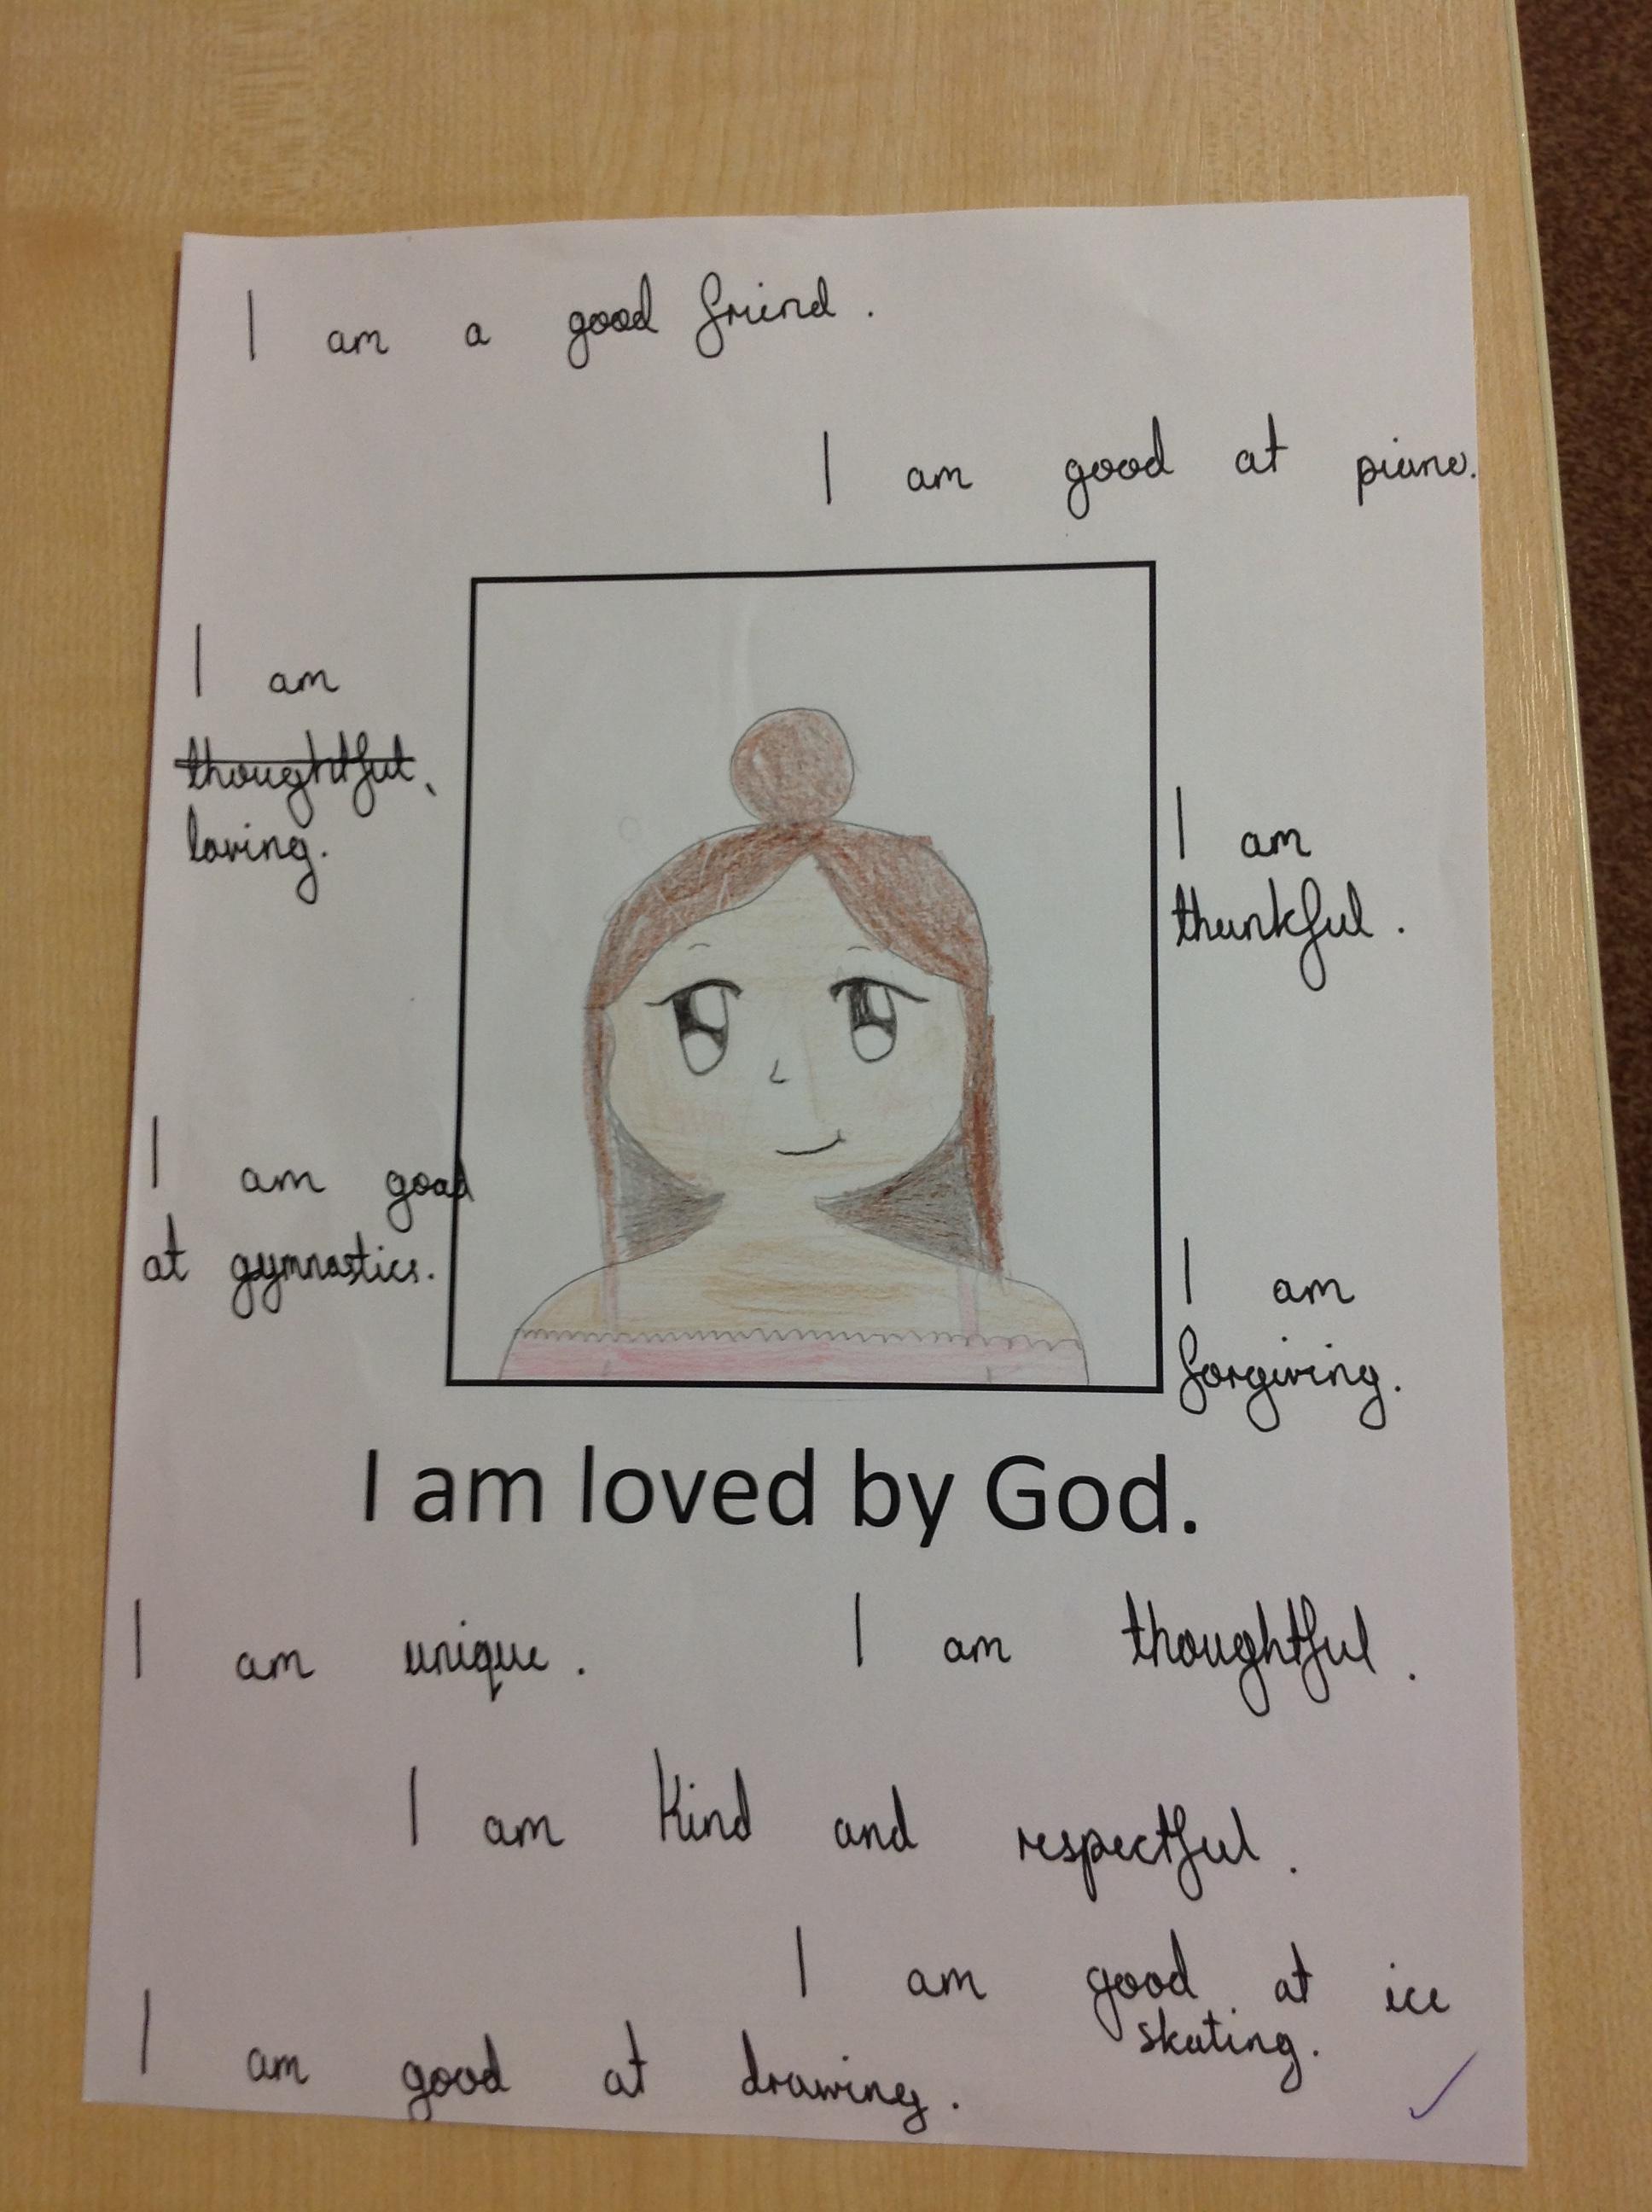 I am a good friend.
I am good at piano.
I am
thoughtful,
loving.
I am
thankful.
I am good
at gymnastics.
I am
forgiving.
I am loved by God.
I am unique.
I am thoughtful.
I am kind and respectful.
I am good at ice
skating.
I am good at drawing.